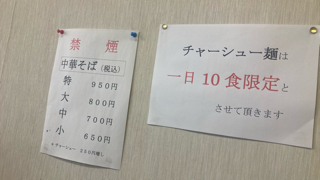 禁煙
中華そば（税込）
特 950円
大 800円
中 700円
小 650円
チャーシュー麺は
一日10食限定と
させて頂きます